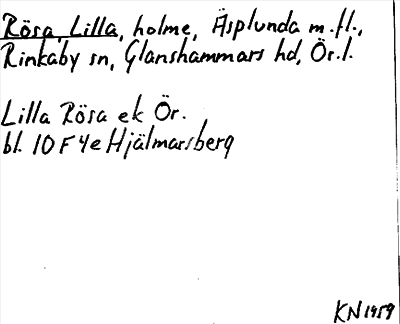 Rösa, Lilla, holme, Äsplunda m.fl.,
Rinkaby sn, Glanshammars hd, Ör.l.
Lilla Rösa ek Ör.
bl. 10 F 4e Hjälmarsberg
KN 1959